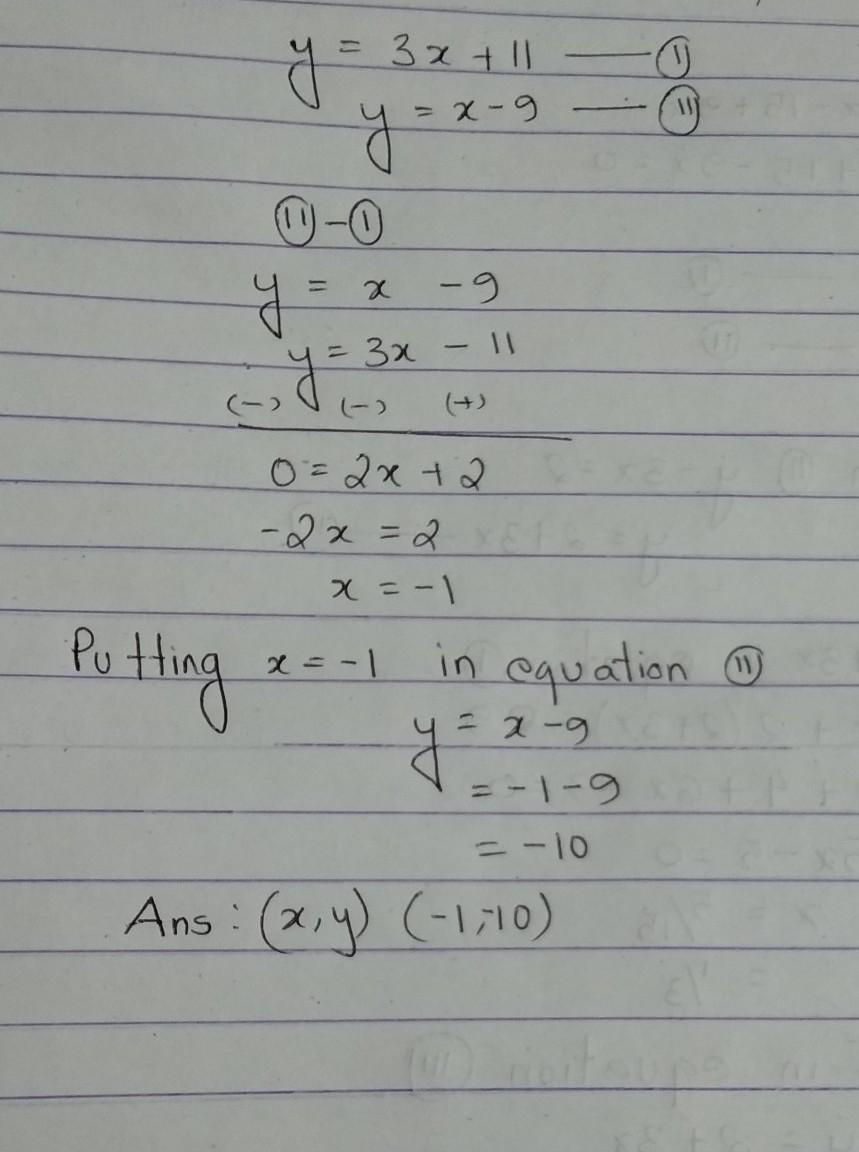 y = 3x + 11 — (I)
y = x - 9 — (II)
(II) - (I)
y = x - 9
y = 3x - 11
(-) (-) (+)
0 = 2x + 2
-2x = 2
x = -1
Putting x = -1 in equation (II)
y = x - 9
= -1 - 9
= -10
Ans : (x, y) (-1, -10)